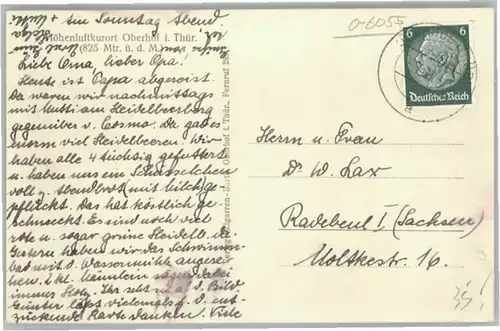 + Am Sonntag Abend.
Höhenluftkurort Oberhof i. Thür.
(825 Mtr. ü. d. M.)
Liebe Oma, lieber Opa!
Heute ist Papa abgereist.
Da waren wir nachmittags
mit Mutti am Heidelbeersberg
gegenüber v. Cosmo. Da gab es
enorm viel Heidelbeeren! Wir
haben alle 4 tüchtig gefuttert
u. haben uns ein Schüsselchen
voll z. Abendbrot mit Milch ge-
pflückt. Das hat köstlich ge-
schmeckt. Es sind noch viel
rote u. sogar grüne Heidelb. da.
Gestern haben wir das Schwimm-
bad mit d. Wassermühle angese-
hen. D. kl. Männlein sägen dabei
immer Holz. Ihr seht d. a. d. Bild
Günter lässt vielemals f. d. ent-
zückende Karte danken. Viele
0-6055
6
6
Deutsches Reich
Herrn u. Frau
Dr W. Lax
Radebeul I (Sachsen)
Moltkestr. 16.